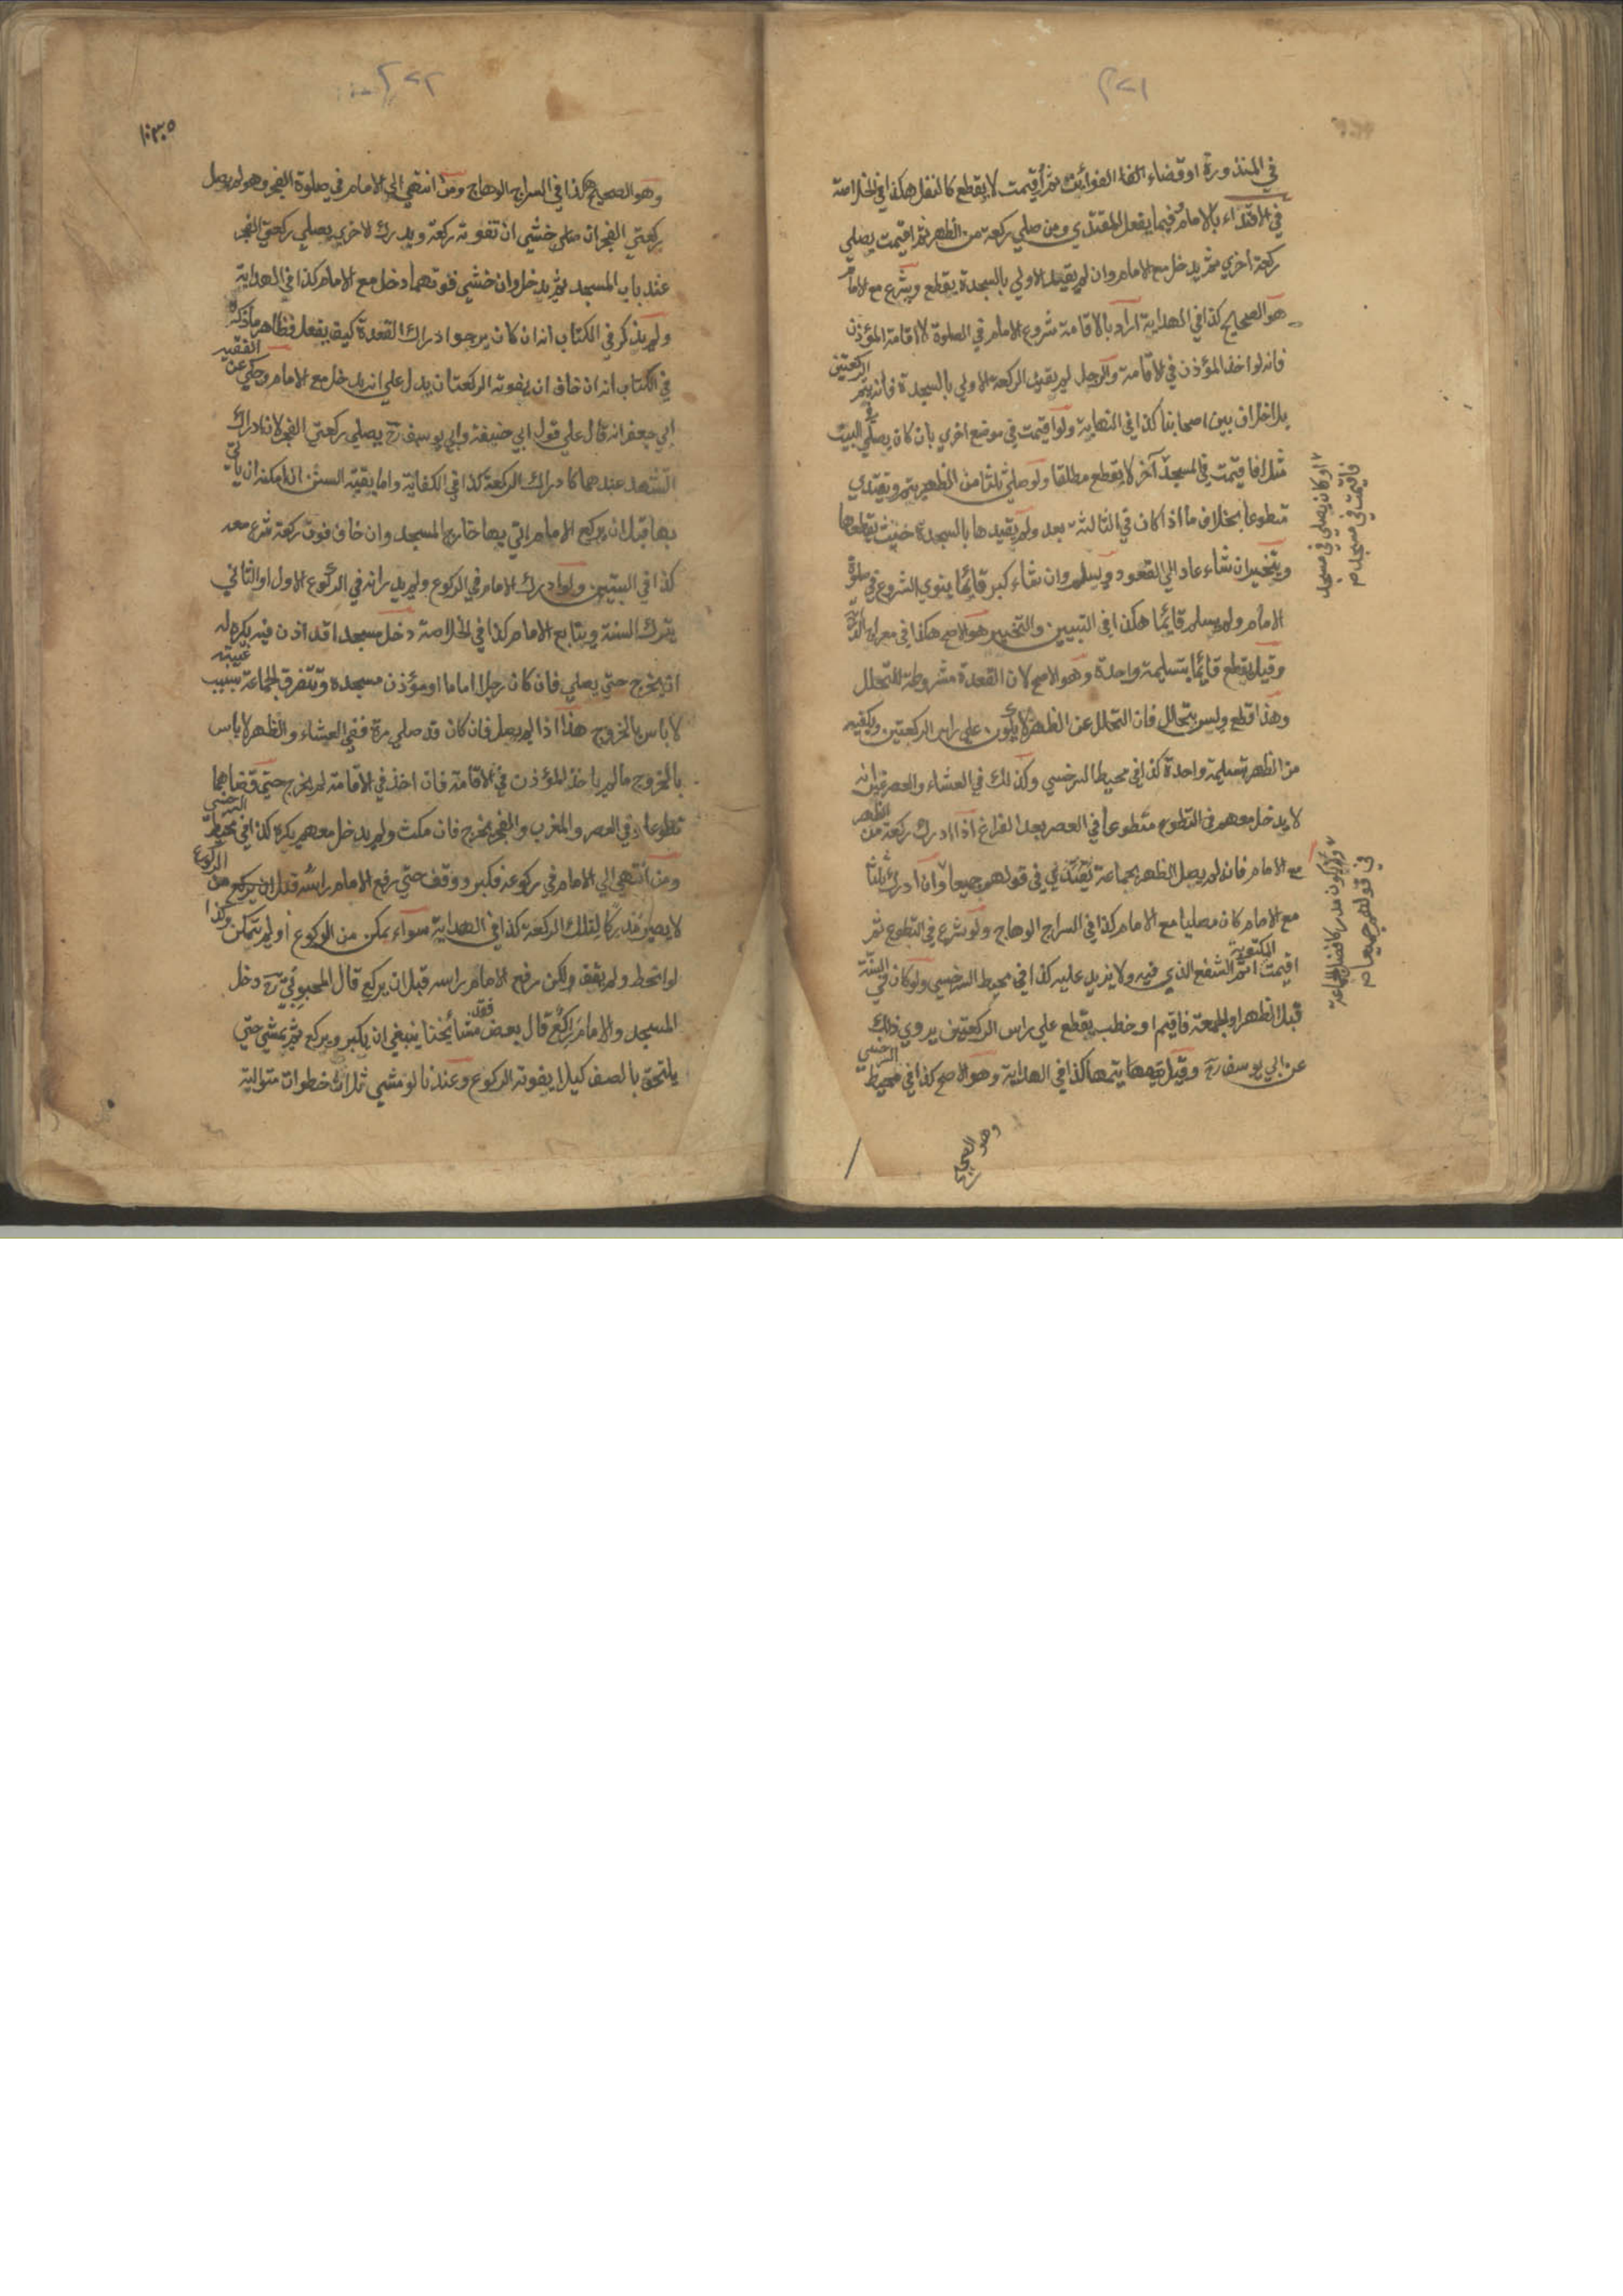 ٢٧١
في المنذورة او قضاء الفوائت ثم اقيمت لا يقطع كالنفل هكذا في الخلاصة
في الاقتداء بالامام فيما يفعل المقتدي ومن صلي ركعة من الظهر ثم اقيمت يصلي
ركعة اخري ثم يدخل مع الامام وان لم يقيد الاولي بالسجدة يقطع ويشرع مع الامام
هو الصحيح كذا في الهداية اراد بالاقامة شروع الامام في الصلوة لا اقامة المؤذن
فانه لو اخذ المؤذن في الاقامة والرجل لم يقيد الركعة الاولي بالسجدة فانه يتم الركعتين
بلا خلاف بين اصحابنا كذا في النهاية ولو اقيمت في موضع اخري بان كان يصلي في البيت
مثلا فاقيمت في المسجد آخر لا يقطع مطلقا ولو صلي ثلثا من الظهر يتم ويقتدي
او كان يصلي في مسجد
فاقيمت في مسجد م
متطوعا بخلاف ما اذا كان في الثالثة بعد ولم يقيدها بالسجدة حيث يقطعها
ويتخير ان شاء عاد الي القعود ويسلم وان شاء كبر قائما ينوي الشروع في صلوة
الامام ولم يسلم قائما هكذا في التبيين والتخيير هو الاصح هكذا في معراج
وقيل يقطع قائما بتسليمة واحدة وهو الاصح لان القعدة مشروطة للتحلل
وهذا قطع وليس بتحلل فان التحلل عن الظهر لا يكون علي راس الركعتين ويكفيه
من الظهر تسليمة واحدة كذا في محيط السرخسي وكذلك في العشاء والعصر غير انه
لا يدخل معهم في التطوع متطوعا في العصر بعد الفراغ اذا ادرك ركعة من الظهر
مع الامام فانه لم يصل الظهر بجماعة في قولهم جميعا وان ادرك ثلثا
ويكون مدركا فضل الجماعة
في قولهم جميعا م
مع الامام كان مصليا مع الامام كذا في السراج الوهاج ولو شرع في التطوع ثم
اقيمت المكتوبة اتم الشفع الذي فيه ولا يزيد عليه كذا في محيط السرخسي ولو كان في السنة
قبل الظهر او الجمعة فاقيم او خطب يقطع علي راس الركعتين يروي ذلك
عن ابي يوسف رح وقيل يتمها كذا في الهداية وهو الاصح كذا في محيط السرخسي
وهو الصحيح
٢٧٢
وهو الصحيح هكذا في السراج الوهاج ومن انتهي الي الامام في صلوة الفجر وهو لم يصل
ركعتي الفجر ان خشي ان تفوته ركعة ويدرك الاخري يصلي ركعتي الفجر
عند باب المسجد ثم يدخل وان خشي فوتهما دخل مع الامام كذا في الهداية
ولم يذكر في الكتاب انه ان كان يرجوا ادراك القعدة كيف يفعل فظاهر ما ذكره
في الكتاب انه ان خاف ان يفوته الركعتان يدل علي انه يدخل مع الامام وحكي عن الفقيه
ابي جعفر انه قال علي قول ابي حنيفة وابي يوسف رح يصلي ركعتي الفجر لان ادراك
التشهد عندهما كادراك الركعة كذا في الكفاية واما بقية السنن ان امكنه ان ياتي
بها قبل ان يركع الامام اتي بها خارج المسجد وان خاف فوت ركعة شرع معه
كذا في التبيين ولو ادرك الامام في الركوع ولم يدر انه في الركوع الاول او الثاني
يترك السنة ويتابع الامام كذا في الخلاصة دخل مسجدا قد اذن فيه يكره له
ان يخرج حتي يصلي فان كان رجلا اماما او مؤذن مسجده وتتفرق الجماعة بسبب غيبته
لا باس بالخروج هذا اذا لم يصل فان كان قد صلي مرة ففي العشاء والظهر لا باس
بالخروج ما لم ياخذ المؤذن في الاقامة فان اخذ في الاقامة لم يخرج حتي قضاهما
تطوعا وفي العصر والمغرب والفجر يخرج فان مكث ولم يدخل معهم يكره كذا في محيط السرخسي
ومن انتهي الي الامام في ركوعه فكبر ووقف حتي رفع الامام راسه قبل ان يركع من الركوع
لا يصير مدركا لتلك الركعة كذا في الهداية سواء تمكن من الركوع او لم يتمكن وكذا
لو انحط ولم يقف ولكن رفع الامام راسه قبل ان يركع قال المحبوبي رح دخل
المسجد والامام راكع فقد قال بعض مشائخنا ينبغي ان يكبر ويركع ثم يمشي حتي
يلتحق بالصف كيلا يفوته الركوع وعندنا لو مشي ثلاث خطوات متوالية